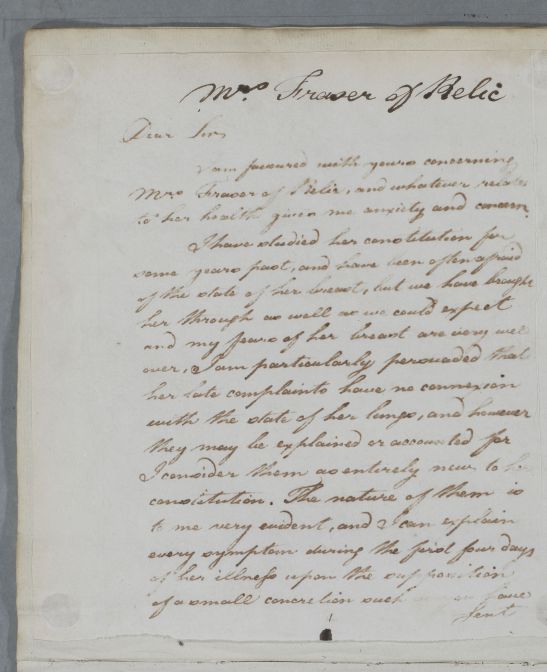 Mrs. Fraser of Relic
Dear Sir,
I am favoured with yours concerning
Mrs Fraser of Relic, and whatever relates
to her health gives me anxiety and concern.
I have studied her constitution for
some years past, and have been often afraid
of the state of her breast, but we have brought
her through as well as we could expect
and my fears of her breast are very well
over, I am particularly persuaded that
her late complaints have no connexion
with the state of her lungs, and however
they may be explained or accounted for
I consider them as entirely new to her
constitution. The nature of them is
to me very evident, and I can explain
every symptom during the first four days
of her illness upon the supposition
of a small concretion such as you have
sent